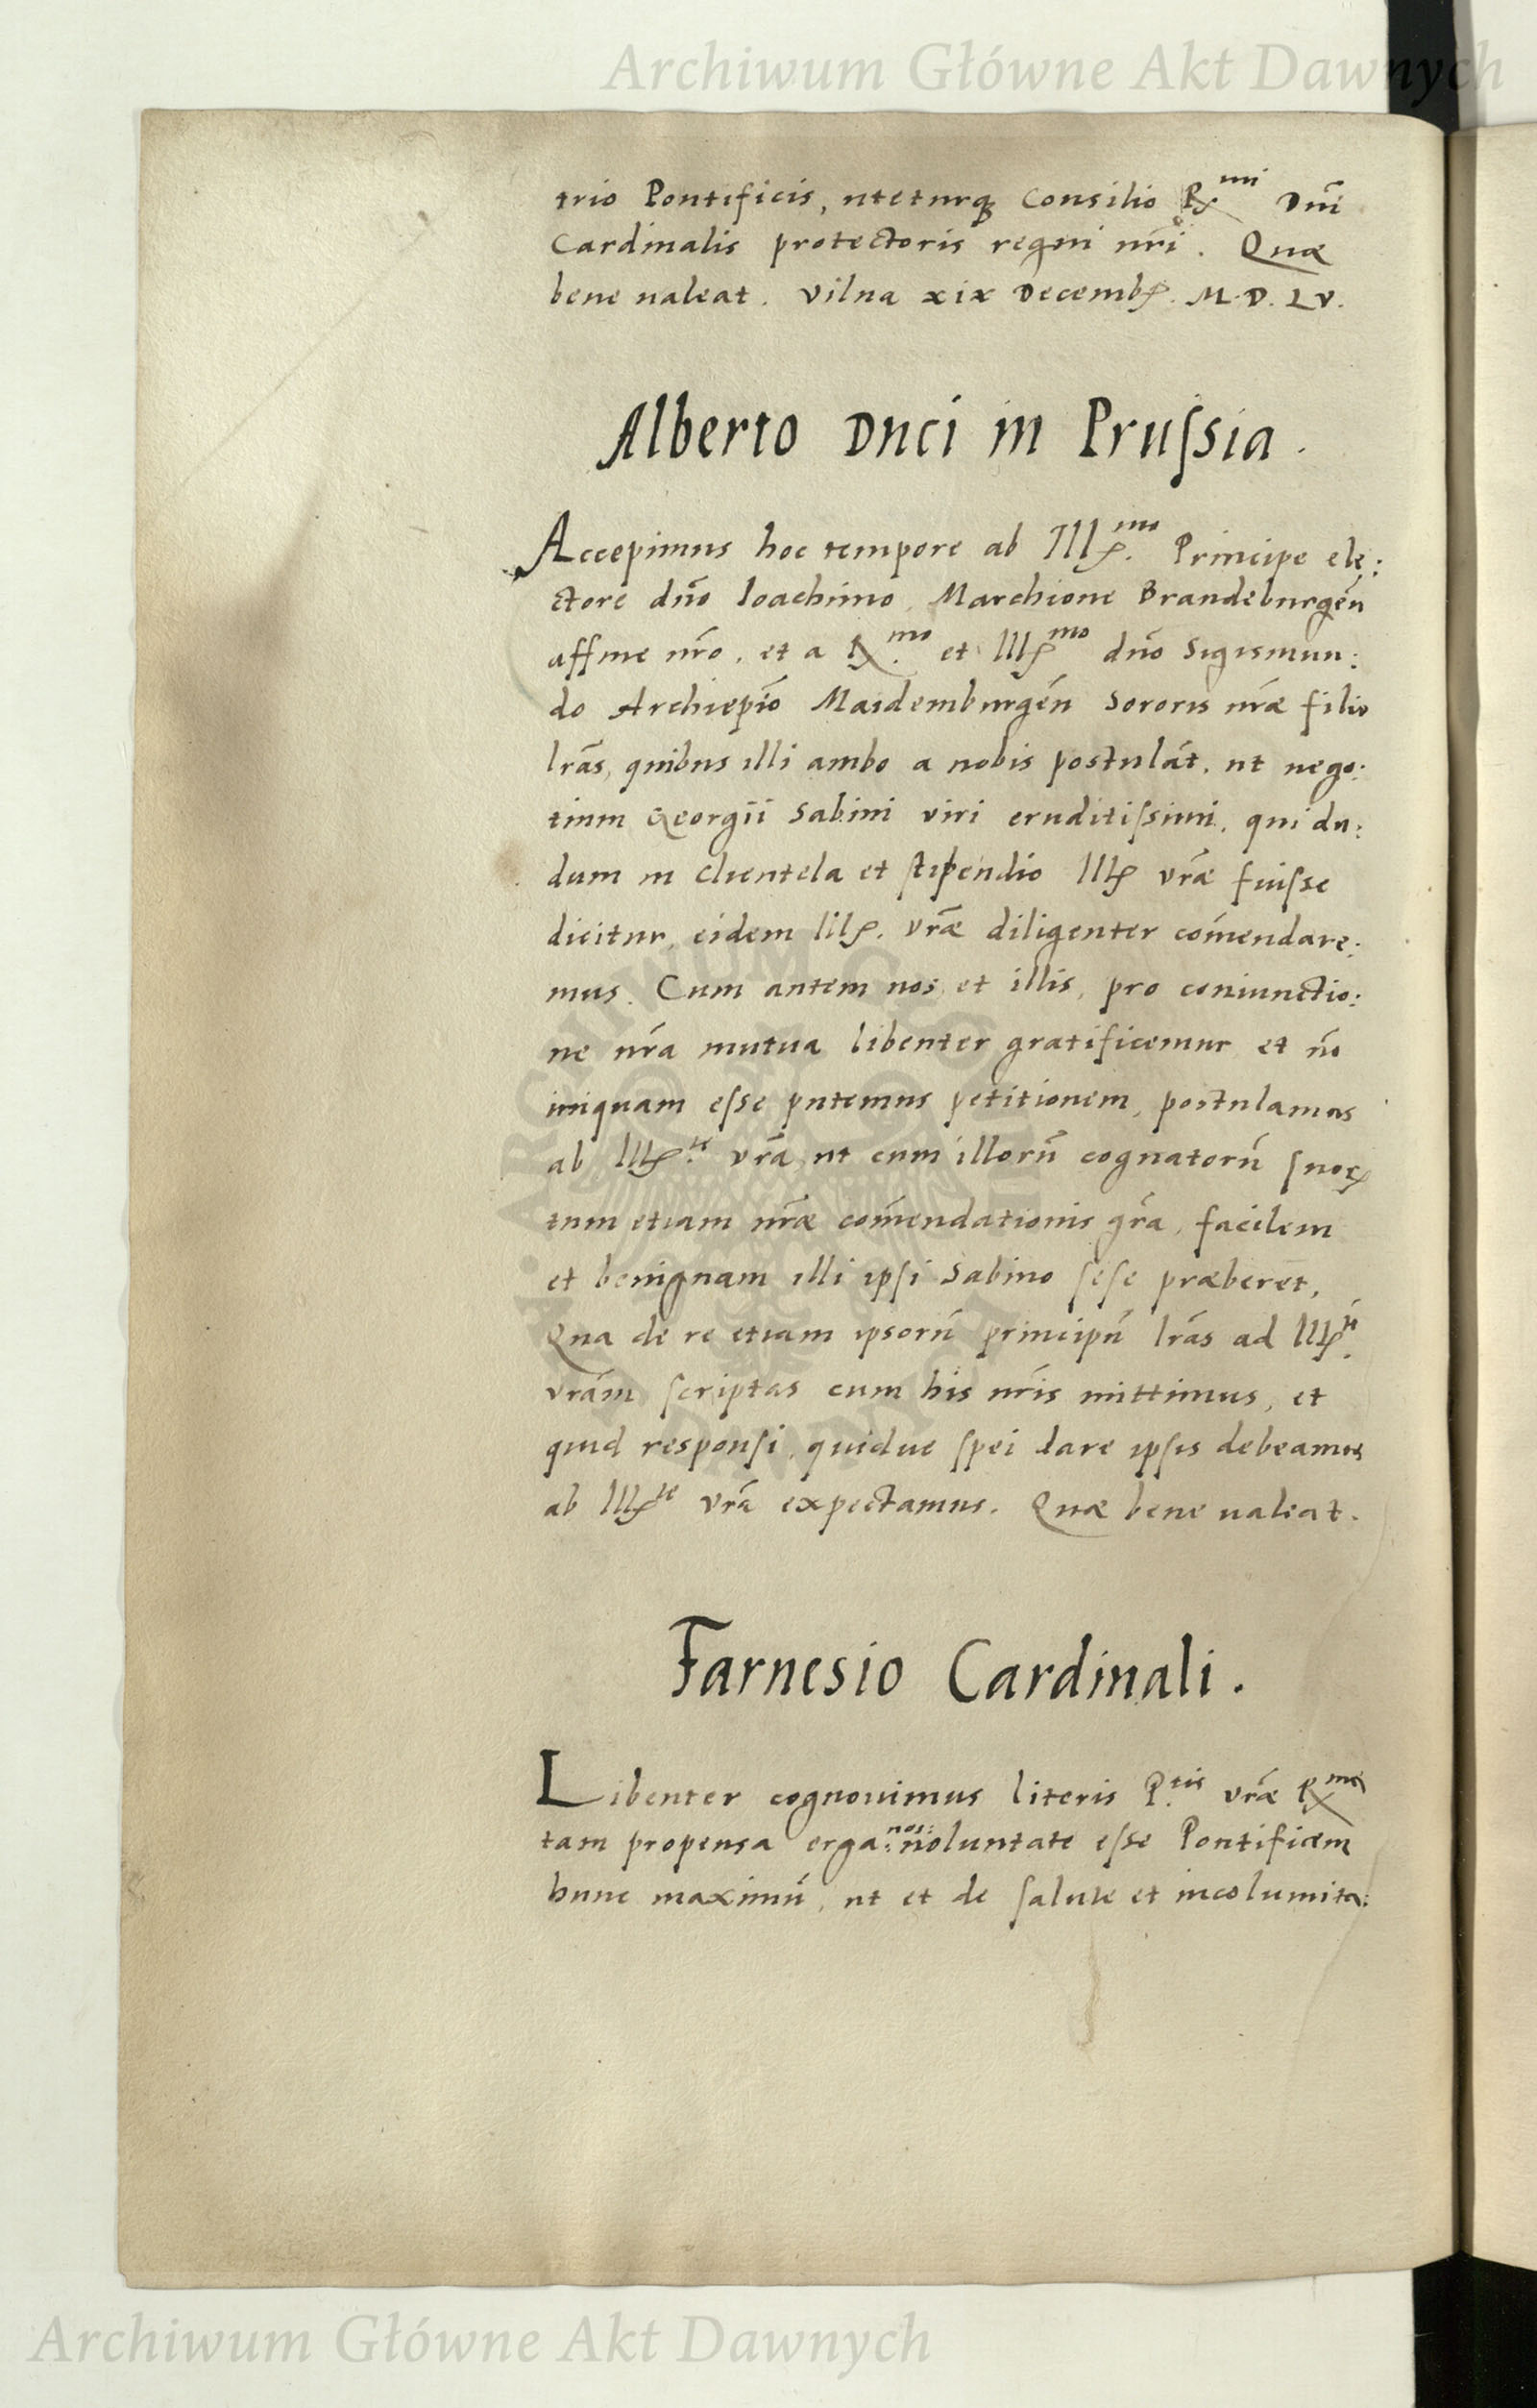 Archiwum Główne Akt Dawnych
trio Pontificis, uteturq₃ Consilio Rmi Dnī
Cardinalis protectoris regni nrī. Quæ
bene ualeat. Vilna xix Decemb. M.D.LV.
Alberto Duci in Prussia.
Accepimus hoc tempore ab Ill.mo Principe ele:
ctore dño Ioachimo, Marchione Brandeburgēn
affine nrō, et a R.mo et Illmo dño Sigismun:
do Archiepīo Maidemburgēn Sororis nræ filio
lrās, quibus illi ambo a nobis postulāt, ut nego:
tium Georgii Sabini viri eruditissimi, qui du:
dum in clientela et stipendio Ill vræ fuisse
dicitur, eidem Ill. vræ diligenter cōmendare:
mus. Cum autem nos et illis, pro coniunctio:
ne nrā mutua libenter gratificemur et nō
iniquam esse putemus petitionem, postulamus
ab Ill.te vrā, ut cum illorū cognatorū suoꝝ
tum etiam nræ cōmendationis grā, facilem
et benignam illi ipsi Sabino sese præberet,
Qua de re etiam ipsorū principū lrās ad Ill.
vrām scriptas cum his nrīs mittimus, et
quid responsi, quidue spei dare ipsis debeamus
ab Illte vrā expectamus. Quæ bene ualeat.
Farnesio Cardinali.
Libenter cognouimus literis P.tis vræ Rmæ
tam propensa erga nos uoluntate esse Pontificem
hunc maximū, ut et de salute et incolumita:
Archiwum Główne Akt Dawnych